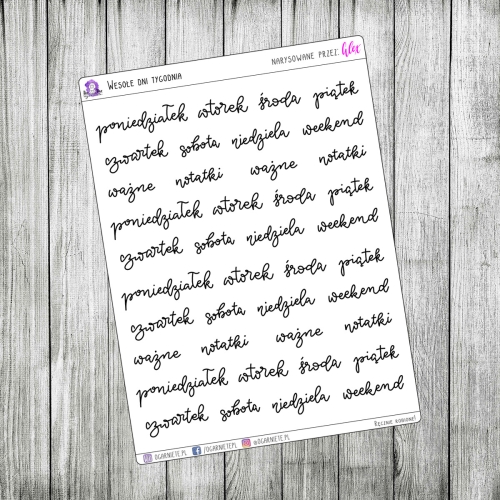 WESOŁE DNI TYGODNIA NARYSOWANE PRZEZ: Alex
poniedziałek wtorek środa piątek
czwartek sobota niedziela weekend
ważne notatki ważne notatki
poniedziałek wtorek środa piątek
czwartek sobota niedziela weekend
poniedziałek wtorek środa piątek
czwartek sobota niedziela weekend
ważne notatki ważne notatki
poniedziałek wtorek środa piątek
czwartek sobota niedziela weekend
OGARNIETE.PL /OGARNIETEPL @OGARNIETE.PL RĘCZNIE ROBIONE!